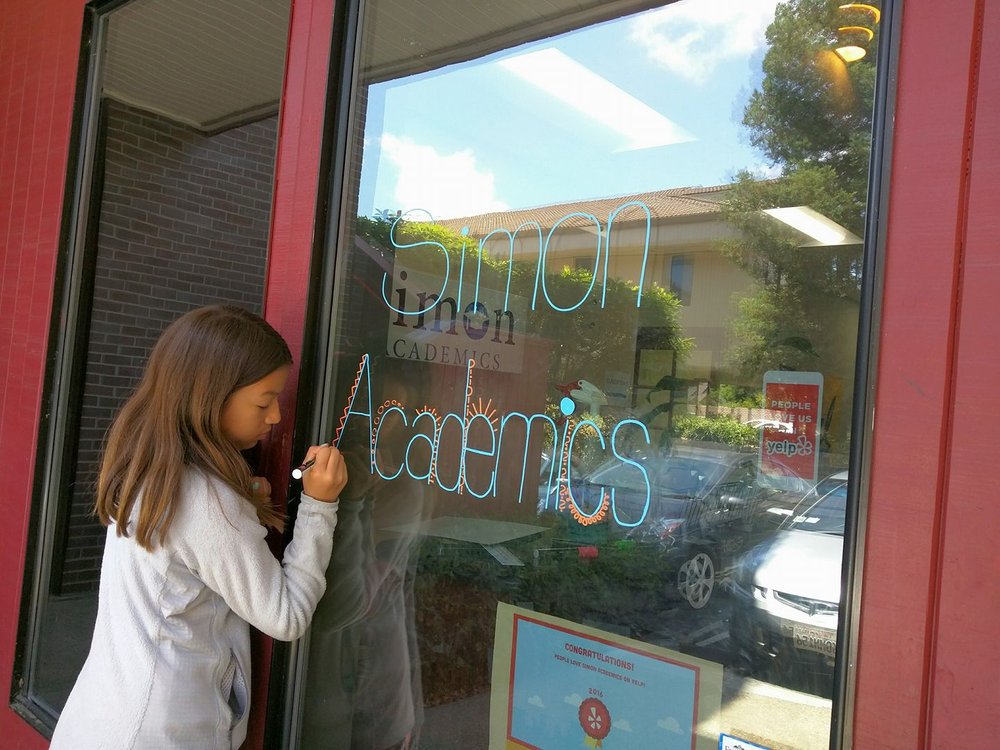 Simon
imon
ACADEMICS
Academics
PEOPLE
LOVE US
yelp
CONGRATULATIONS!
PEOPLE LOVE SIMON ACADEMICS ON YELP!
2016